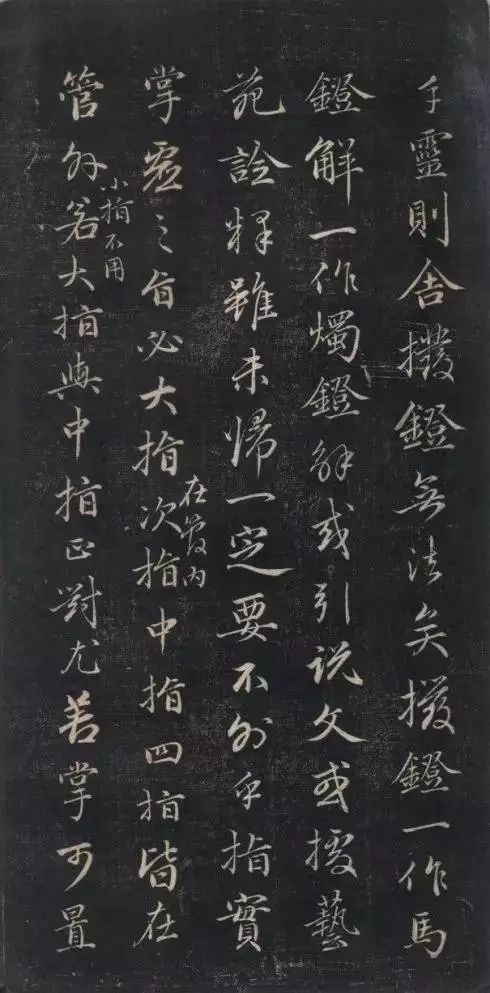 手靈則舍撥鐙無法矣撥鐙一作馬
鐙解一作燭鐙解或引説文或據藝
苑詮釋雖未歸一定要不外乎指實
在内
掌虛之旨必大指次指中指四指皆在
小指不用
管外若大指與中指正對尤善掌可置